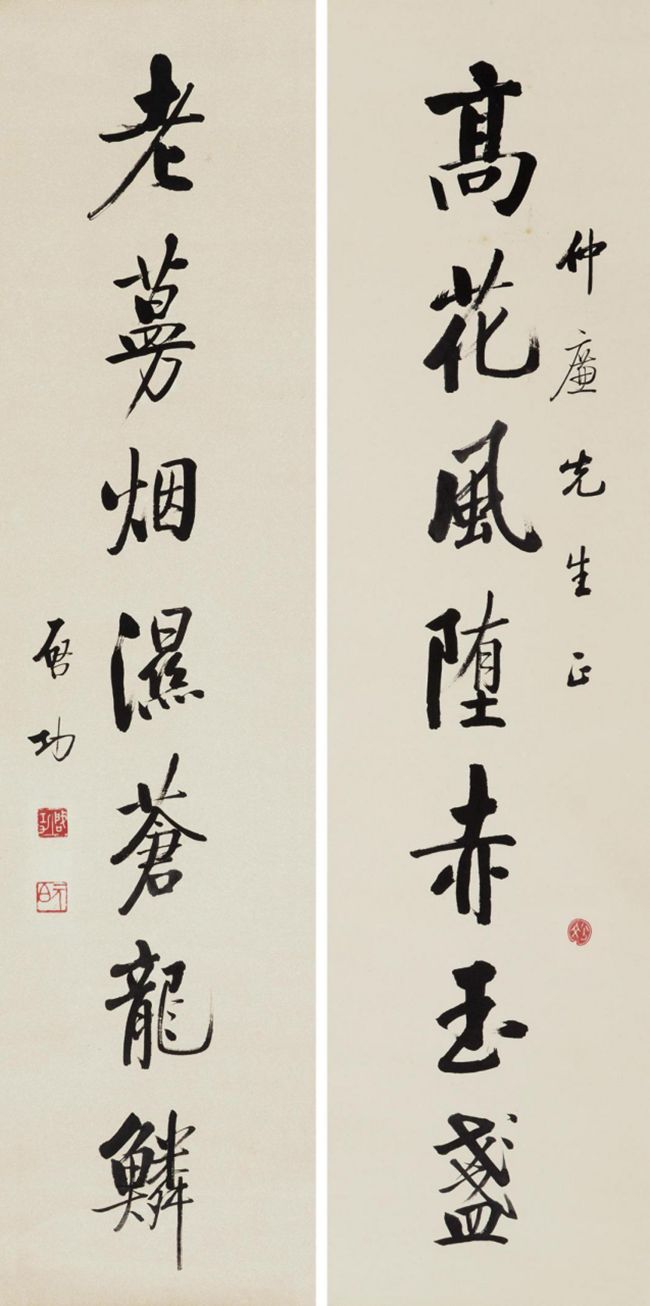 仲廉先生正
髙花風堕赤玉盞
老蔓烟濕蒼龍鱗
啓功